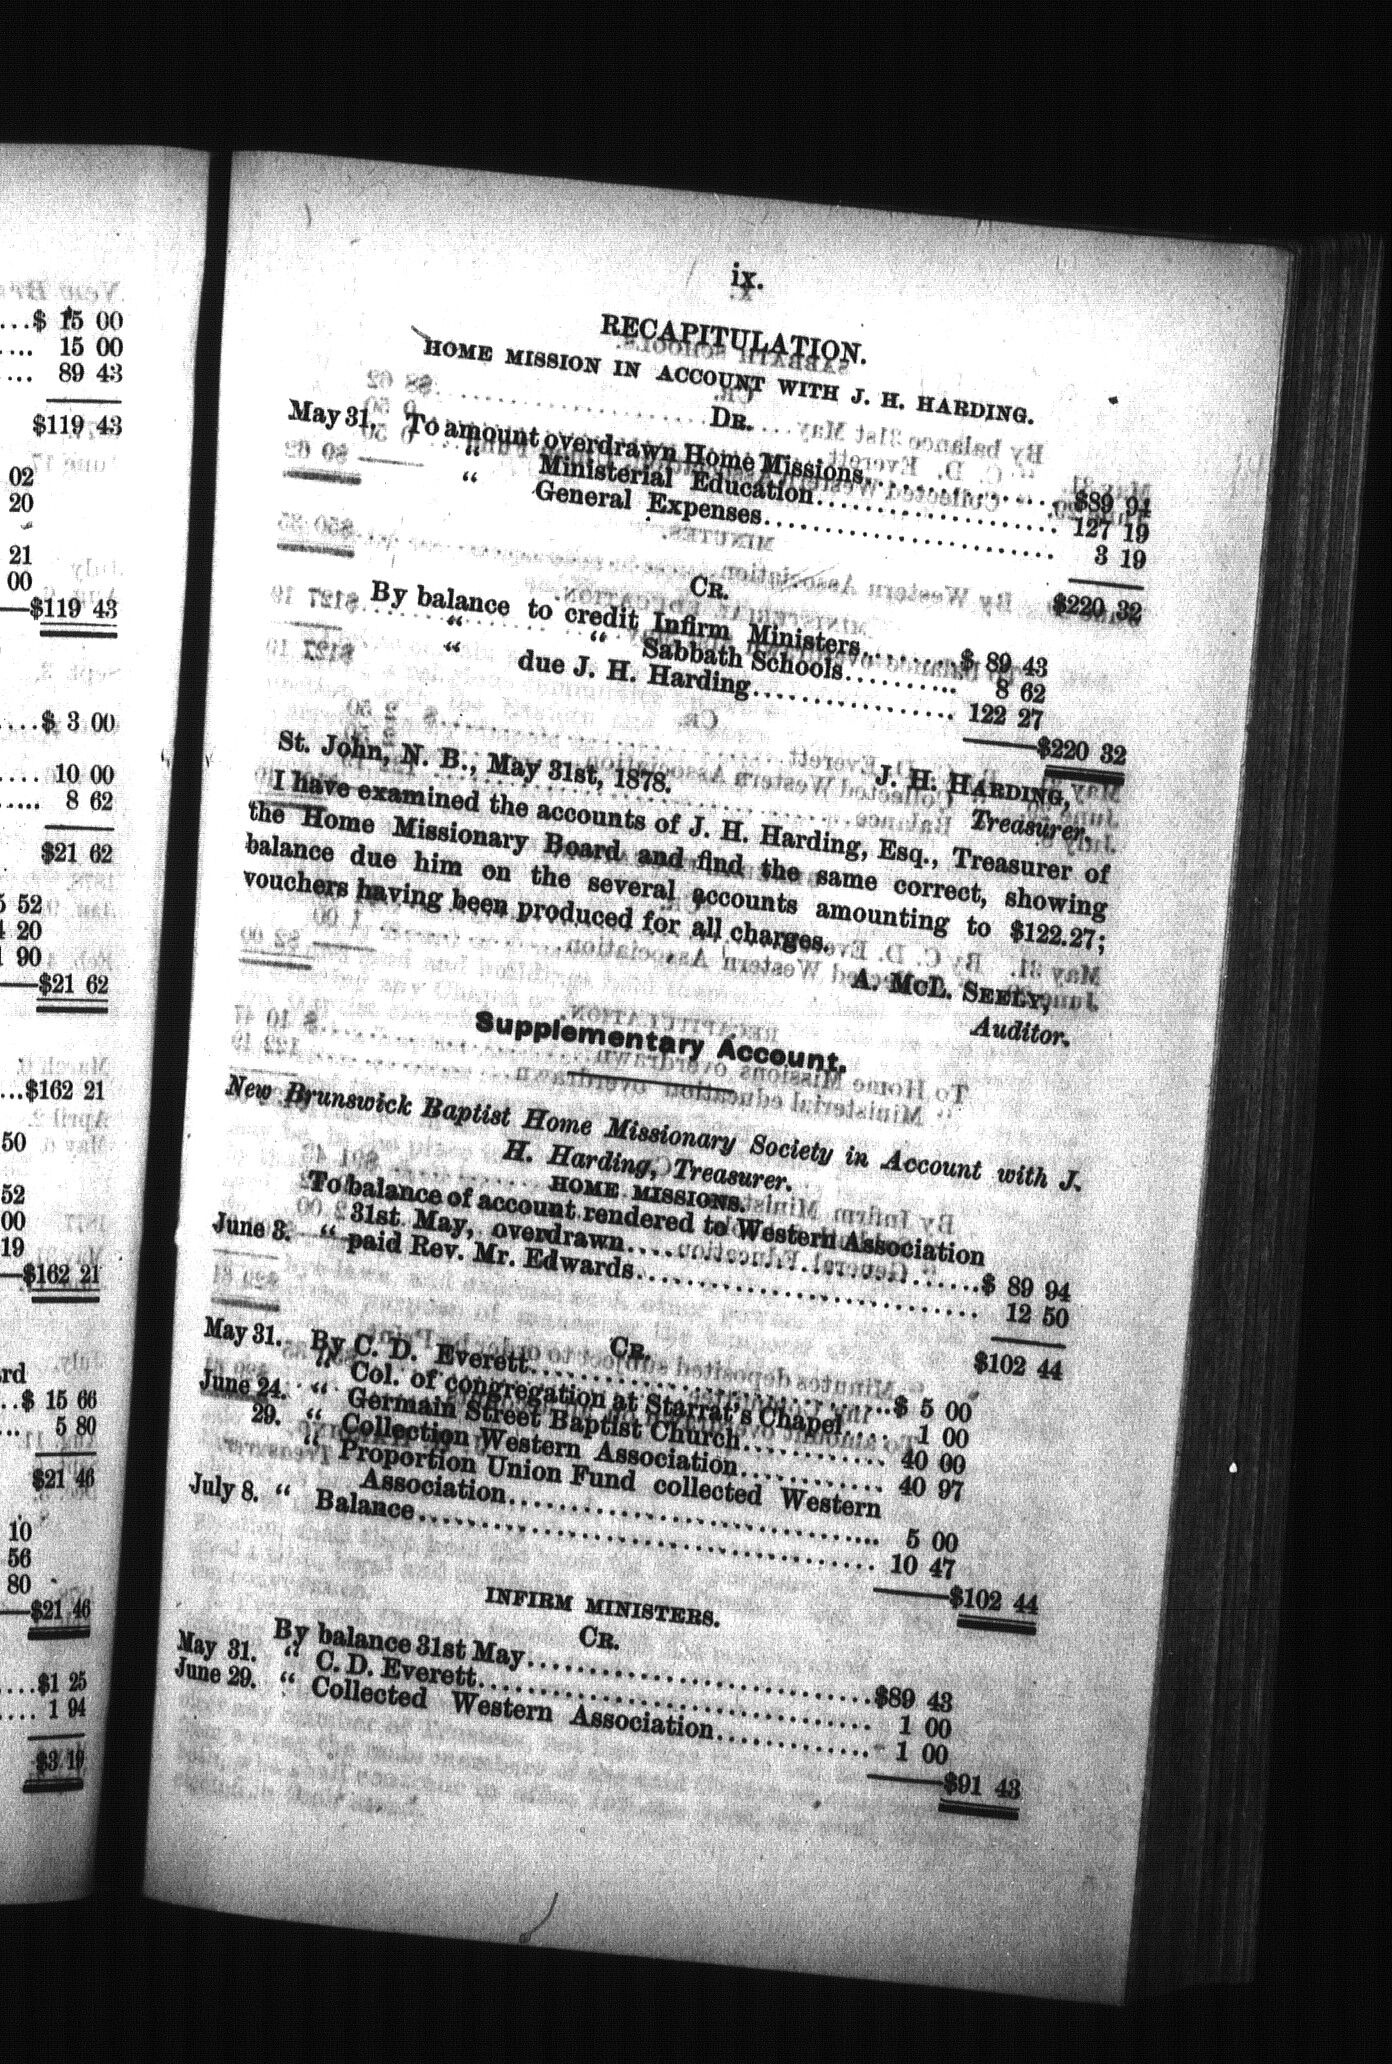 ...$ 15 00
... 15 00
... 89 43
$119 43
02
20
21
00
$119 43
....$ 3 00
.... 10 00
..... 8 62
$21 62
5 52
4 20
1 90
$21 62
...$162 21
50
52
00
19
$162 21
ard
..$ 15 66
... 5 80
$21 46
10
56
80
$21 46
....$1 25
.... 1 94
$3 19
ix.
RECAPITULATION.
HOME MISSION IN ACCOUNT WITH J. H. HARDING.
DR.
May 31. To amount overdrawn Home Missions.................. $89 94
" Ministerial Education.................... 127 19
" General Expenses........................ 3 19
$220 32
CR.
By balance to credit Infirm Ministers........ $ 89 43
" " Sabbath Schools.......... 8 62
" due J. H. Harding................ 122 27
$220 32
St. John, N. B., May 31st, 1878.
J. H. HARDING,
Treasurer.
I have examined the accounts of J. H. Harding, Esq., Treasurer of
the Home Missionary Board and find the same correct, showing
balance due him on the several accounts amounting to $122.27;
vouchers having been produced for all charges.
A. McL. SEELY,
Auditor.
Supplementary Account.
New Brunswick Baptist Home Missionary Society in Account with J.
H. Harding, Treasurer.
HOME MISSIONS.
To balance of account rendered to Western Association
31st May, overdrawn..............................$ 89 94
June 3. " paid Rev. Mr. Edwards.............................. 12 50
$102 44
CR.
May 31. By C. D. Everett..............................$ 5 00
" Col. of congregation at Starrat's Chapel.... 1 00
June 24. " Germain Street Baptist Church............ 40 00
29. " Collection Western Association............ 40 97
" Proportion Union Fund collected Western
Association.............................. 5 00
July 8. " Balance.................................... 10 47
$102 44
INFIRM MINISTERS.
CR.
By balance 31st May..............................$89 43
May 31. " C. D. Everett.............................. 1 00
June 29. " Collected Western Association............ 1 00
$91 43